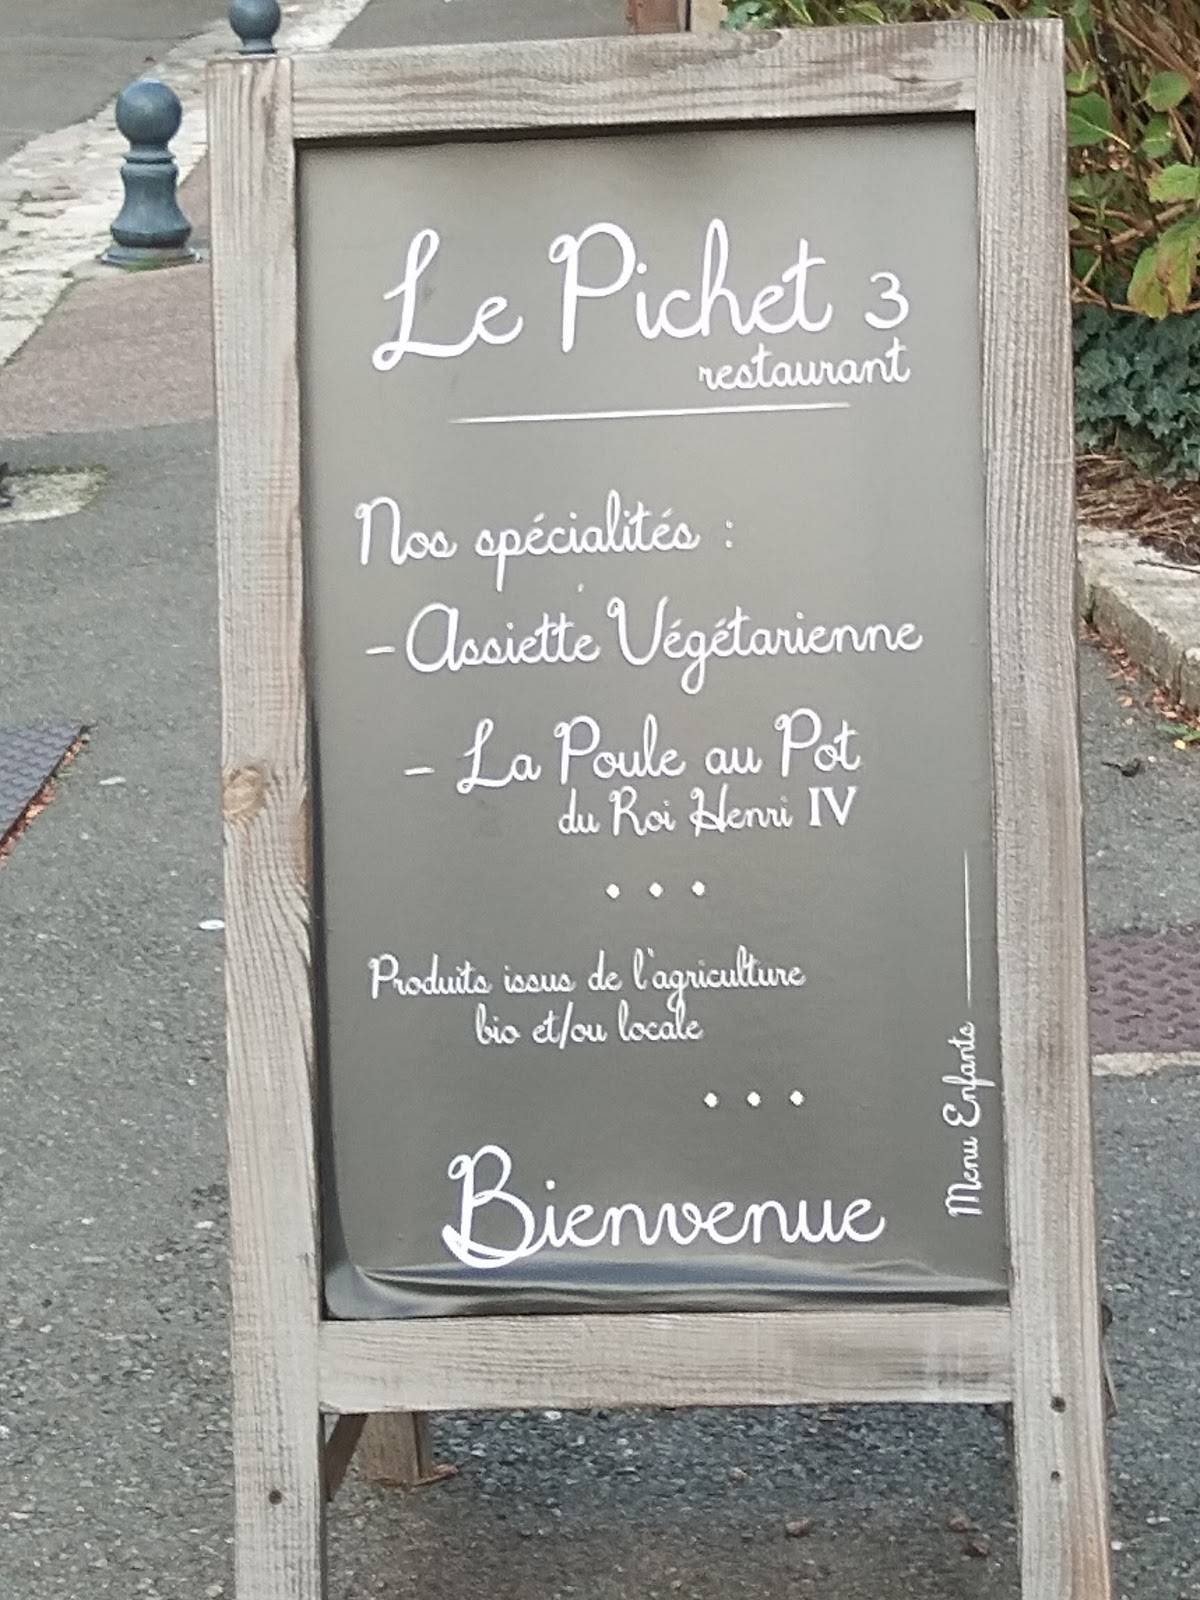 Le Pichet 3
restaurant
Nos spécialités :
- Assiette Végétarienne
- La Poule au Pot
du Roi Henri IV
...
Produits issus de l'agriculture
bio et/ou locale
...
Bienvenue
Menu Enfants